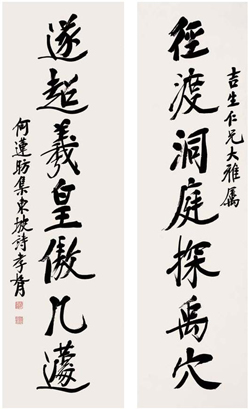 吉生仁兄大雅屬
徑渡洞庭探禹穴
遂超羲皇傲几蘧
何蓮昉集東坡詩孝胥